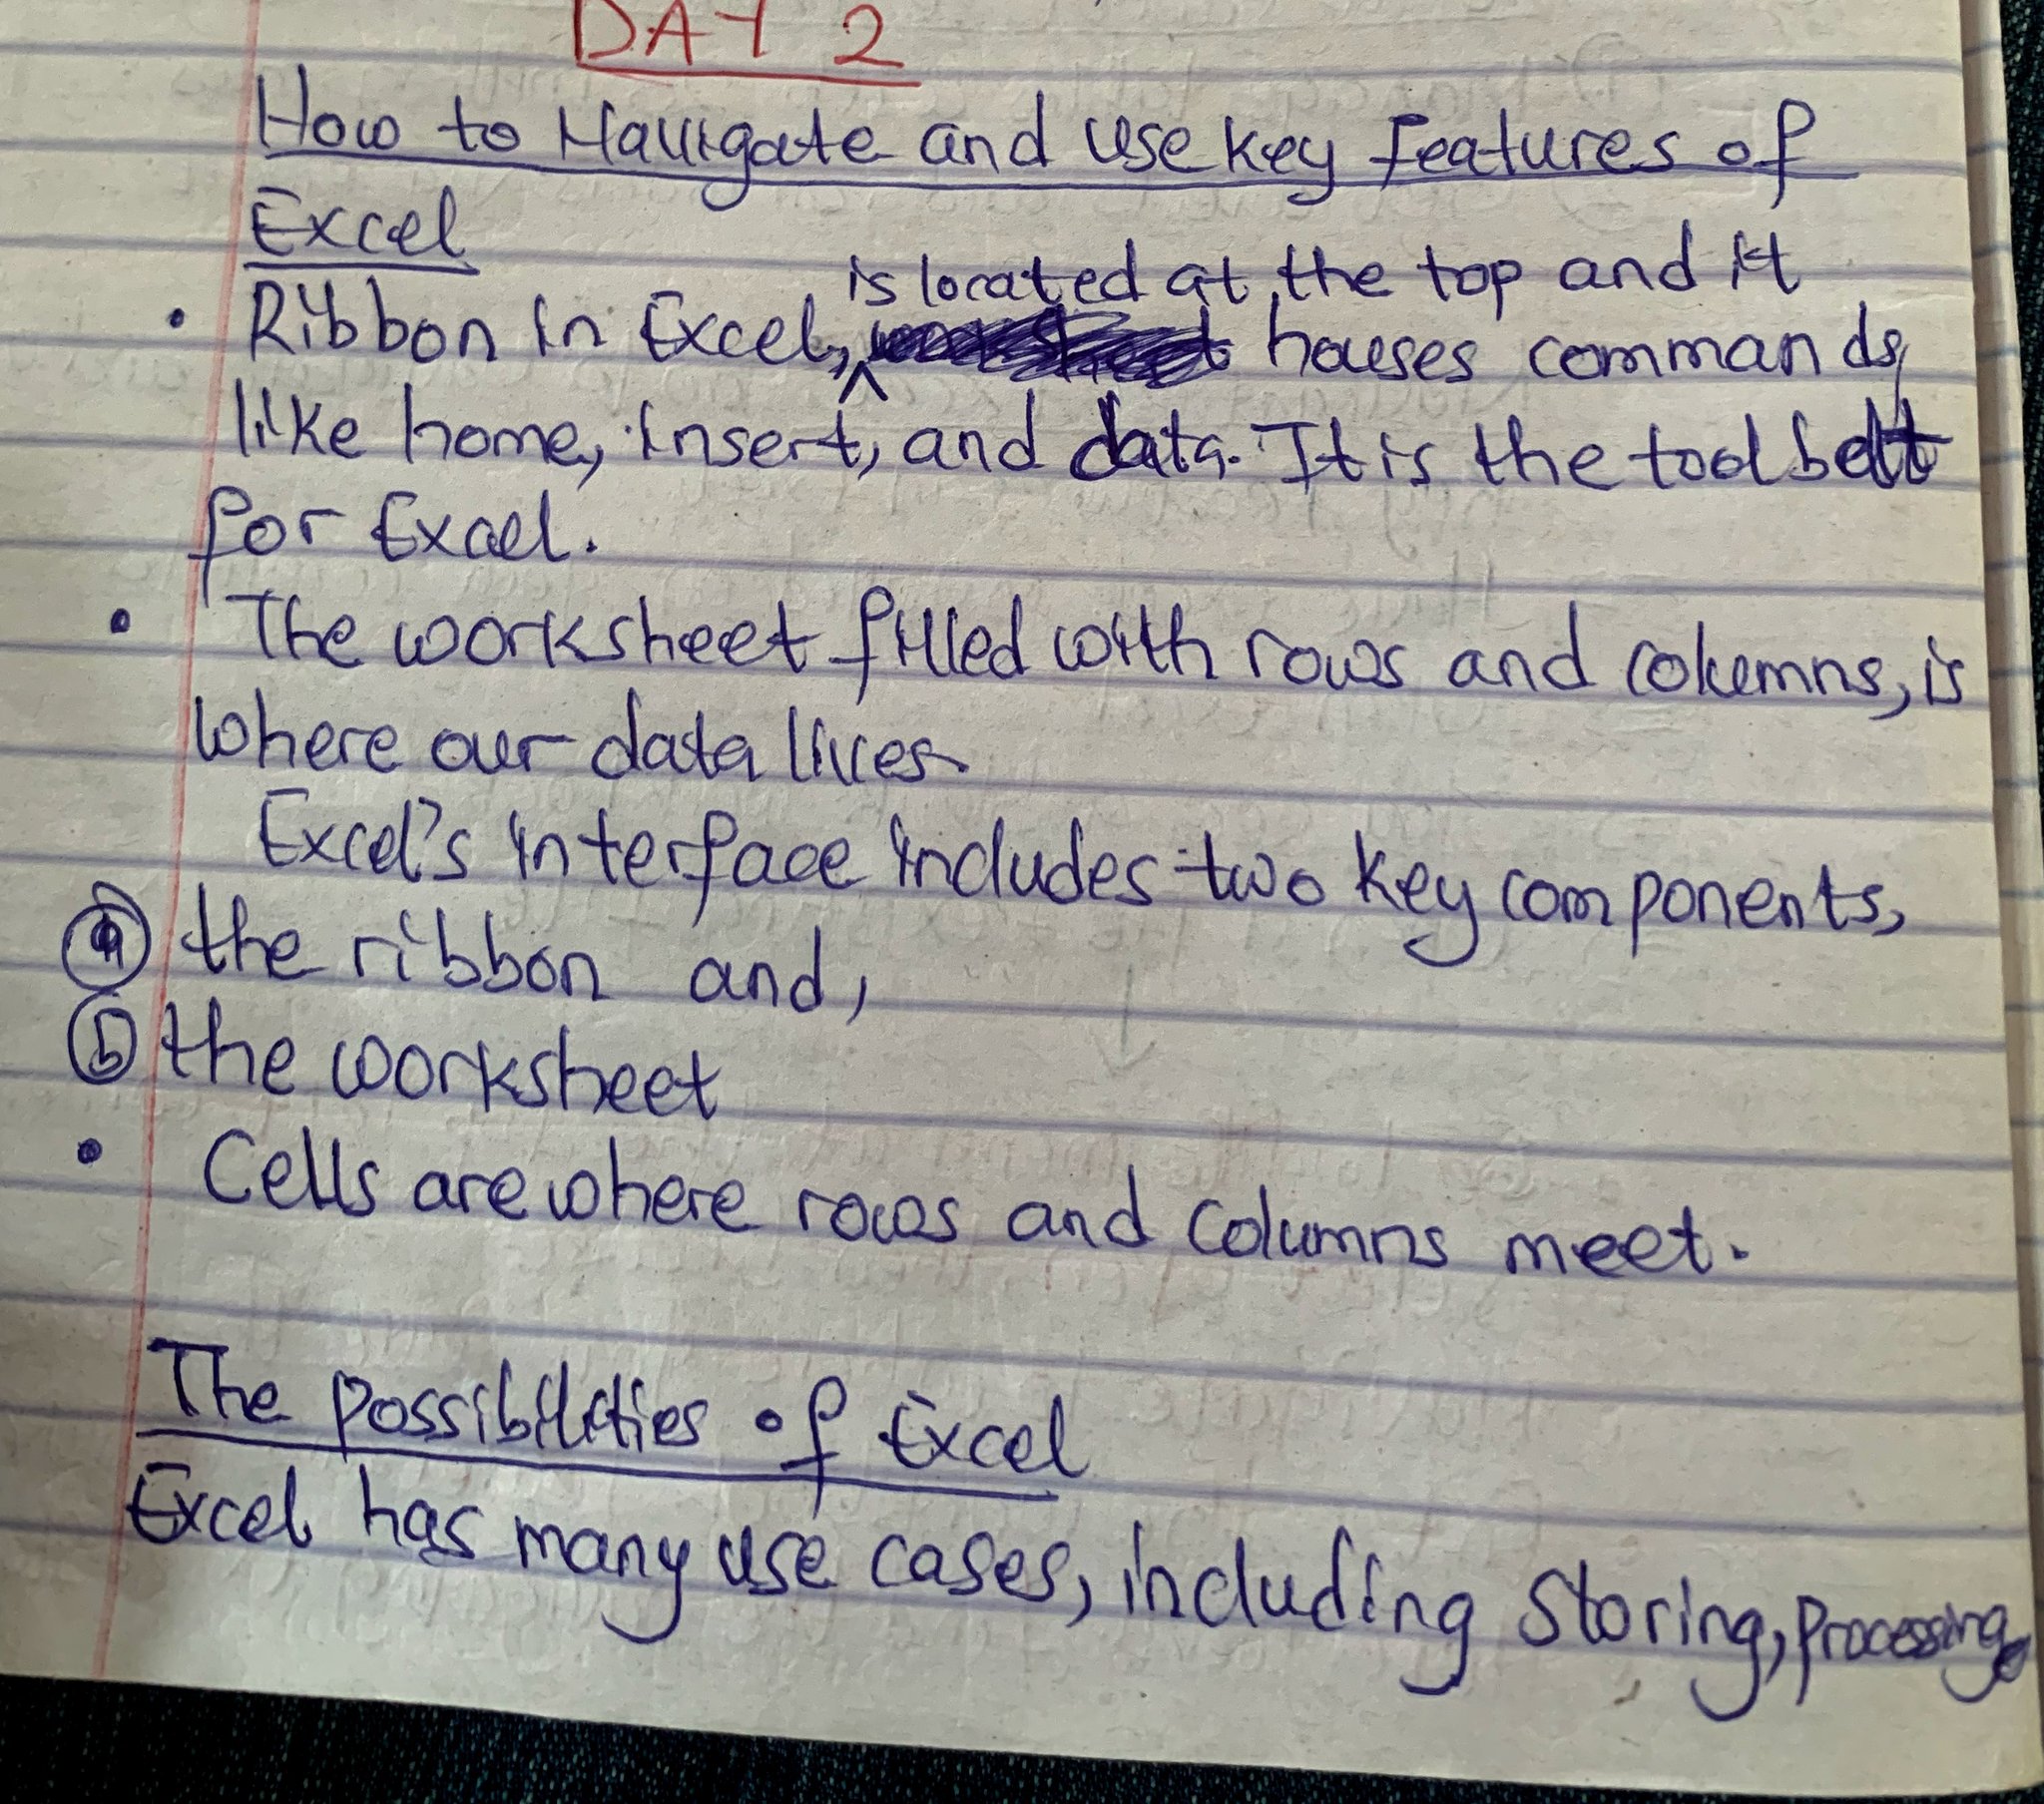 DAY 2
How to Navigate and use key features of
Excel
is located at the top and it
• Ribbon in Excel, houses commands
like home, insert, and data. It is the tool belt
for Excel.
• The worksheet filled with rows and columns, is
where our data lives.
Excel's interface includes two key components,
ⓐ the ribbon and,
ⓑ the worksheet
• Cells are where rows and columns meet.
The possibilities of Excel
Excel has many use cases, including storing, processing